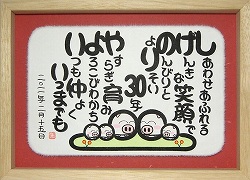 しあわせあふれる
げんきな笑顔で
のんびりと
よりそい30年
やすらぎ育み
よろこびわかち
いつも仲よく
いつまでも